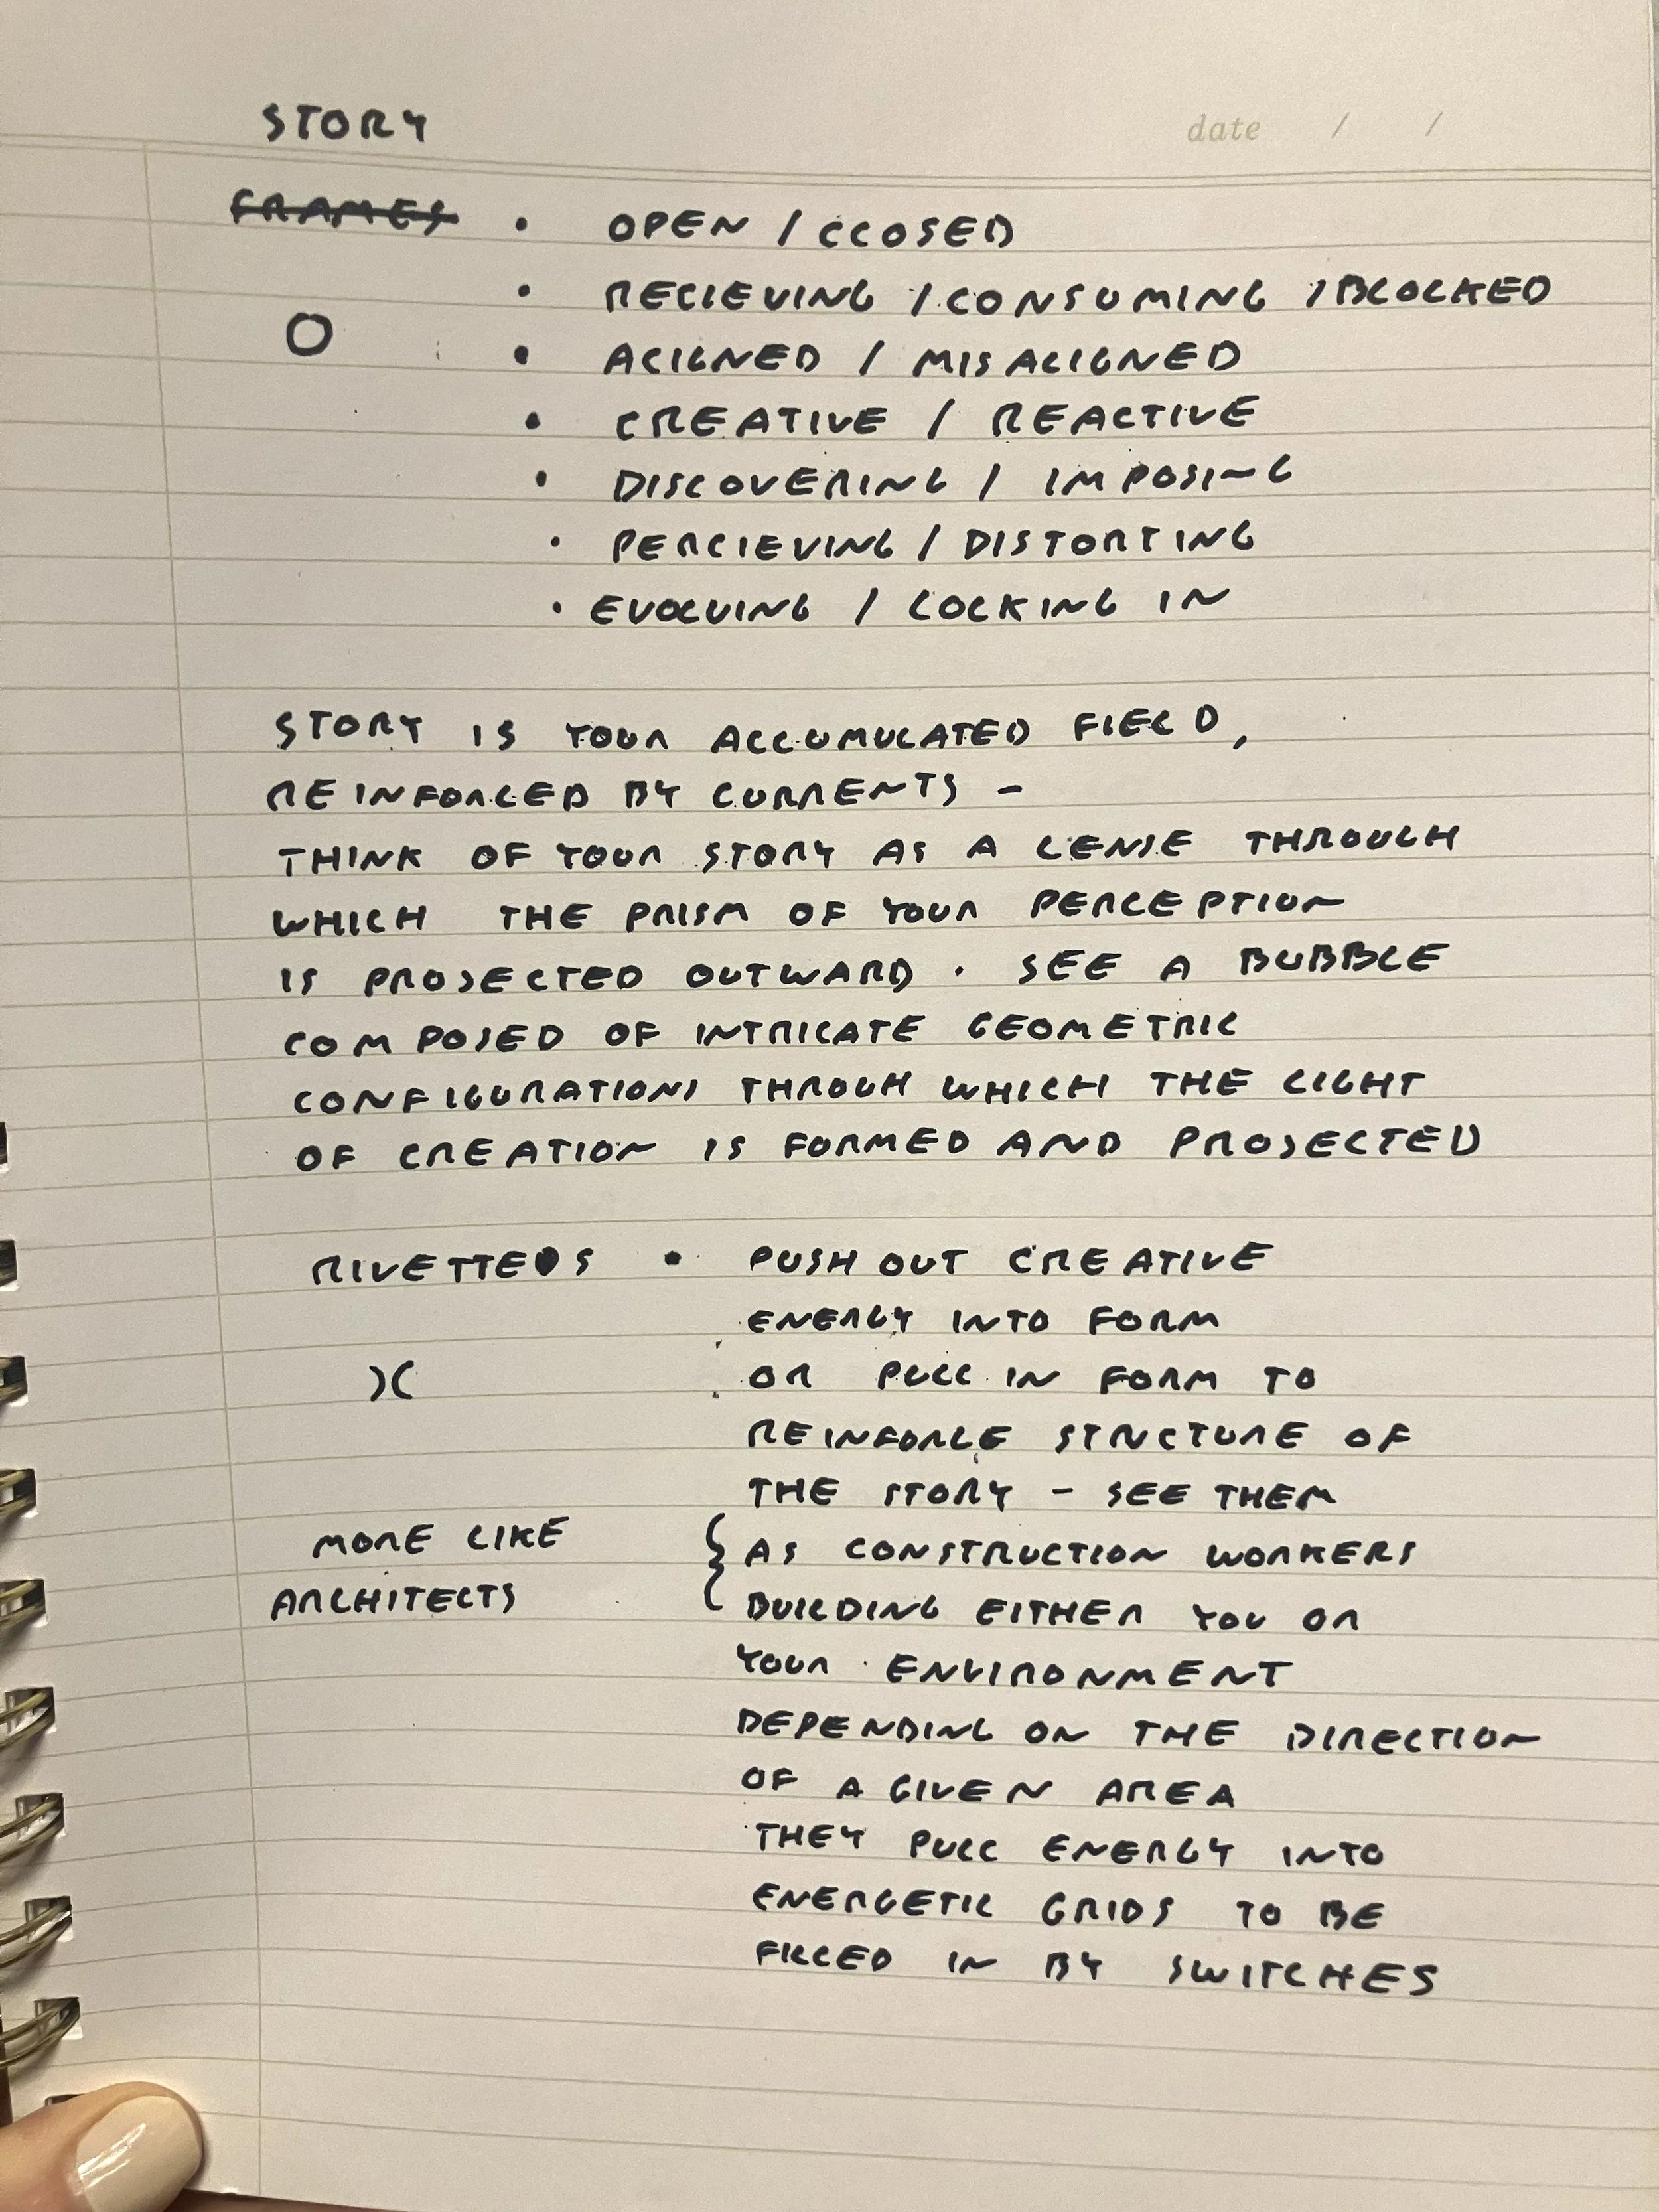 STORY
date / /
FRAMES • OPEN / CLOSED
• RECIEVING / CONSUMING / BLOCKED
O
• ALIGNED / MISALIGNED
• CREATIVE / REACTIVE
• DISCOVERING / IMPOSING
• PERCIEVING / DISTORTING
• EVOLVING / LOCKING IN
STORY IS YOUR ACCUMULATED FIELD,
REINFORCED BY CURRENTS -
THINK OF YOUR STORY AS A LENSE THROUGH
WHICH THE PRISM OF YOUR PERCEPTION
IS PROJECTED OUTWARD. SEE A BUBBLE
COMPOSED OF INTRICATE GEOMETRIC
CONFIGURATIONS THROUGH WHICH THE LIGHT
OF CREATION IS FORMED AND PROJECTED
RIVETTEOS • PUSH OUT CREATIVE
ENERGY INTO FORM
)( OR PULL IN FORM TO
REINFORCE STRUCTURE OF
THE STORY - SEE THEM
MORE LIKE { AS CONSTRUCTION WORKERS
ARCHITECTS BUILDING EITHER YOU OR
YOUR ENVIRONMENT
DEPENDING ON THE DIRECTION
OF A GIVEN AREA
THEY PULL ENERGY INTO
ENERGETIC GRIDS TO BE
FILLED IN BY SWITCHES